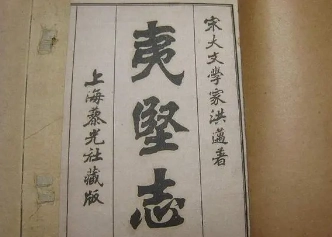 宋大文学家洪邁著
夷堅志
上海藜光社藏版